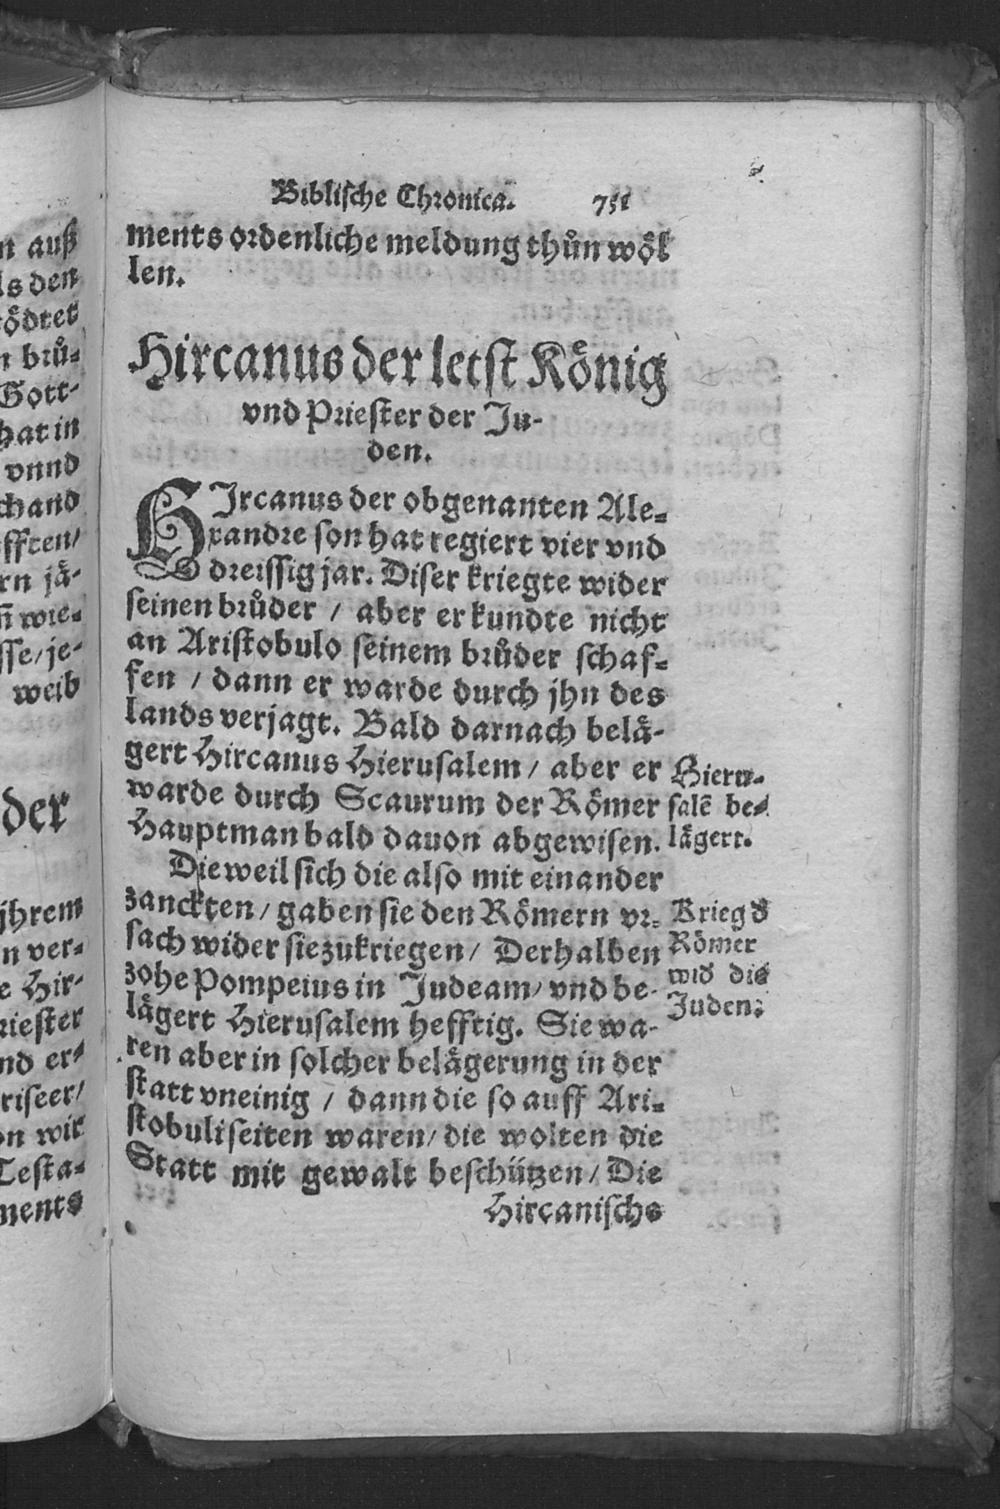 n auß
ls den
tödtet
n brů-
Gott-
hat in
vnnd
chand
fften/
rn jä-
wie-
sse/ je-
weib
der
jhrem
n ver-
e Hir-
riester
nd er-
riseer/
on wir
Testa-
ments
Biblische Chronica. 751
ments ordenliche meldung thůn wöl
len.
Hircanus der letst König
vnd Priester der Ju-
den.
HIrcanus der obgenanten Ale-
xandre son hat regiert vier vnd
dreissig jar. Diser kriegte wider
seinen brůder / aber er kundte nicht
an Aristobulo seinem brůder schaf-
fen / dann er warde durch jhn des
lands verjagt. Bald darnach belä-
gert Hircanus Hierusalem / aber er
warde durch Scaurum der Römer
Hauptman bald dauon abgewisen.
Hieru-
salē be-
lägert.
Dieweil sich die also mit einander
zanckten / gaben sie den Römern vr-
sach wider sie zukriegen / Derhalben
zohe Pompeius in Judeam / vnd be-
lägert Hierusalem hefftig. Sie wa-
ren aber in solcher belägerung in der
statt vneinig / dann die so auff Ari-
stobuli seiten waren / die wolten die
Statt mit gewalt beschützen / Die
Krieg d
Römer
wid die
Juden.
Hircanische